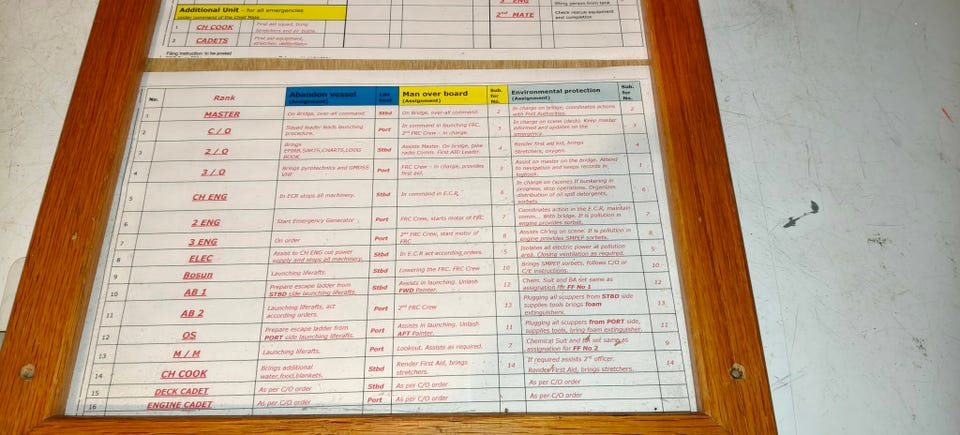 Additional Unit - for all emergencies
under command of the Chief Mate
1 CH COOK First aid squad, bring
Stretchers and
2 CADETS First aid equipment,
stretcher, defibrillator
3° ENG
lifting person from tank
2nd MATE Check rescue equipment
and completion
Filing instruction: to be posted
No. Rank Abandon vessel (Assignment) Life boat Man over board (Assignment) Sub. for No. Environmental protection (Assignment) Sub. for No.
1 MASTER On Bridge, over-all command. Stbd On Bridge, over-all command. 2 In charge on bridge, coordinates actions with Port Authorities. 2
2 C / O Squad leader leads launching procedure. Port In command in launching FRC, 2nd FRC Crew – in charge. 3 In charge on scene (deck). Keep master informed and updates on the emergency. 3
3 2 / O Brings EPIRB,SARTS,CHARTS,LOOG BOOK. Stbd Assists Master. On bridge, take radio Comm. First AID Leader. 4 Render first aid kid, brings Stretchers, oxygen. 4
4 3 / O Brings pyrotecnics and GMDSS VHF Port FRC Crew – in charge, provides first aid. 3 Assist on master on the bridge. Attend to navigation and keeps records in logbook. 1
5 CH ENG In ECR stops all machinery. Stbd In command in E.C.R, 6 In charge on (scene) If bunkering in progress, stop operations. Organizes distribution of oil spill detergents, sorbets. 6
6 2 ENG Start Emergency Generator Port FRC Crew, starts motor of FRC 7 Coordinates action in the E.C.R, maintain comm.. With bridge. If is pollution in engine provides sorbet. 7
7 3 ENG On order Port 2nd FRC Crew, start motor of FRC 8 Assists C/eng on scene. If is pollution in engine provides SMPEP sorbets. 8
8 ELEC Assist to CH ENG cut power supply and stops all machinery. Stbd In E.C.R act according orders. 5 Isolates all electric power at pollution area. Closing ventilation as required. 5
9 Bosun Launching liferafts. Stbd Lowering the FRC. FRC Crew 10 Brings SMPEP sorbets, follows C/O or C/E instructions. 10
10 AB 1 Prepare escape ladder from STBD side launching liferafts. Stbd Assists in launching. Unlash FWD Painter. 12 Chem. Suit and BA set same as assignation for FF No 1 12
11 AB 2 Launching liferafts, act according orders. Port 2nd FRC Crew 13 Plugging all scuppers from STBD side supplies tools brings foam extinguishers. 13
12 OS Prepare escape ladder from PORT side launching liferafts. Port Assists in launching. Unlash AFT Painter. 11 Plugging all scuppers from PORT side, supplies tools, bring foam extinguisher. 11
13 M / M Launching liferafts. Port Lookout. Assists as required. 7 Chemical Suit and BA set same as assignation for FF No 2 9
14 CH COOK Brings additional water,food,blankets. Stbd Render First Aid, brings stretchers. 14 If required assists 2nd officer. Render First Aid, brings stretchers. 14
15 DECK CADET As per C/O order Stbd As per C/O order As per C/O order
16 ENGINE CADET As per C/O order Port As per C/O order As per C/O order